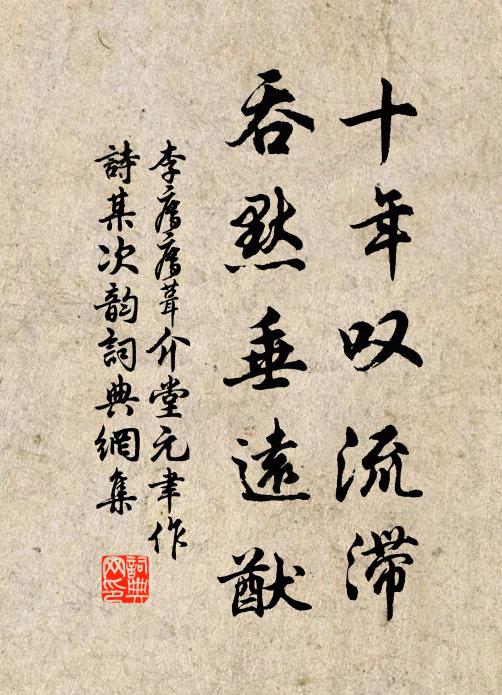 十年叹流滞
吞默垂遠猷
李廌廌葺介堂元聿作
詩某次韵詞典網集
詞典网印